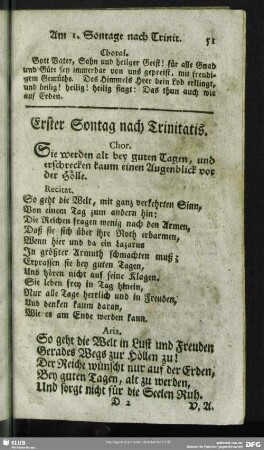 Am 1. Sontage nach Trinit. 51
Choral.
Gott Vater, Sohn und heilger Geist! für alle Gnad
und Güte sey immerdar von uns gepreist, mit freudi-
gem Gemüthe. Des Himmels Heer dein Lob erklingt,
und heilig! heilig! heilig singt: Das thun auch wir
auf Erden.
Erster Sontag nach Trinitatis.
Chor.
Sie werden alt bey guten Tagen, und
erschrecken kaum einen Augenblick vor
der Hölle.
Recitat.
So geht die Welt, mit ganz verkehrten Sinn,
Von einem Tag zum andern hin:
Die Reichen fragen wenig nach den Armen,
Daß sie sich über ihre Noth erbarmen,
Wenn hier und da ein Lazarus
In größter Armuth schmachten muß;
Erprassen sie bey guten Tagen,
Und hören nicht auf seine Klagen,
Sie leben frey in Tag hinein,
Nur alle Tage herrlich und in Freuden,
Und denken kaum daran,
Wie es am Ende werden kann.
Aria.
So geht die Welt in Lust und Freuden
Gerades Wegs zur Höllen zu!
Der Reiche wünscht nur auf der Erden,
Bey guten Tagen, alt zu werden,
Und sorgt nicht für die Seelen Ruh.
D 2 V. A.
SLUB
DFG